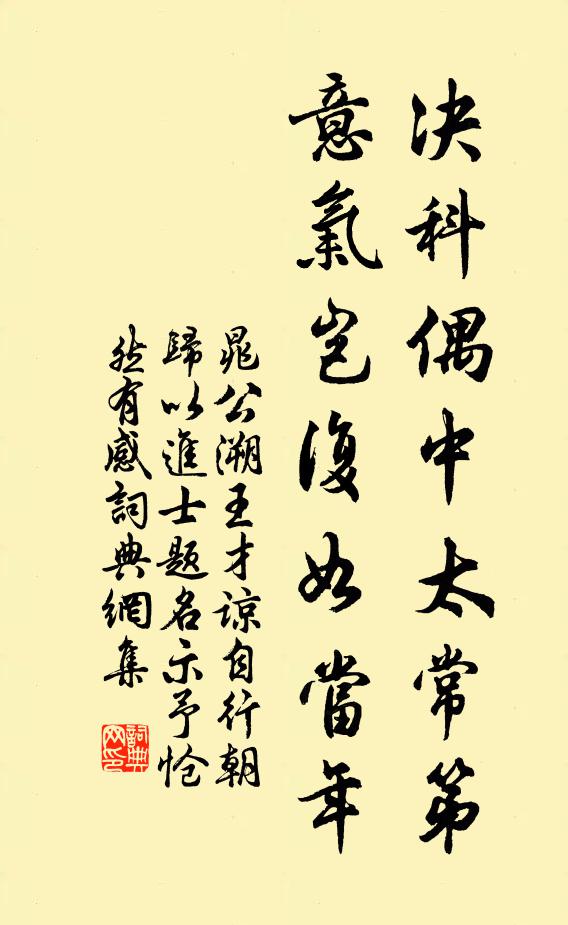 決科偶中太常第
意氣豈復如當年
晁公溯王才諒自行朝
歸以進士題名示予愴
然有感詞典網集
詞典
网印